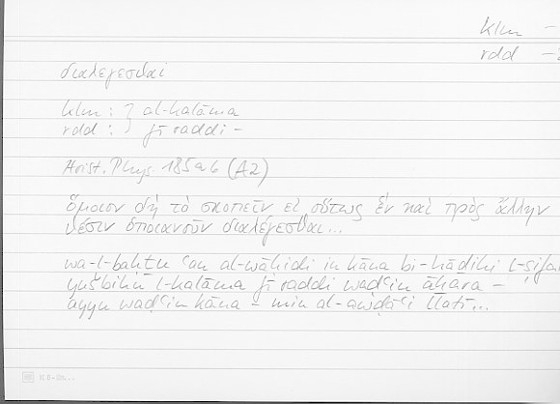 klm –
rdd –
διαλέγεσθαι
klm : } al-kalāma
rdd : } fī raddi –
Arist. Phys. 185a6 (A2)
ὅμοιον δὴ τὸ σκοπεῖν εἰ οὕτως ἓν καὶ πρὸς ἄλλην
θέσιν ὁποιανοῦν διαλέγεσθαι...
wa-l-baḥṯu ʿan al-wāḥidi in kāna bi-hāḏihī l-ṣifa
yušbihu l-kalāma fī raddi waḍʿin āḫara –
ayyu waḍʿin kāna – min al-awḍāʿi llatī...